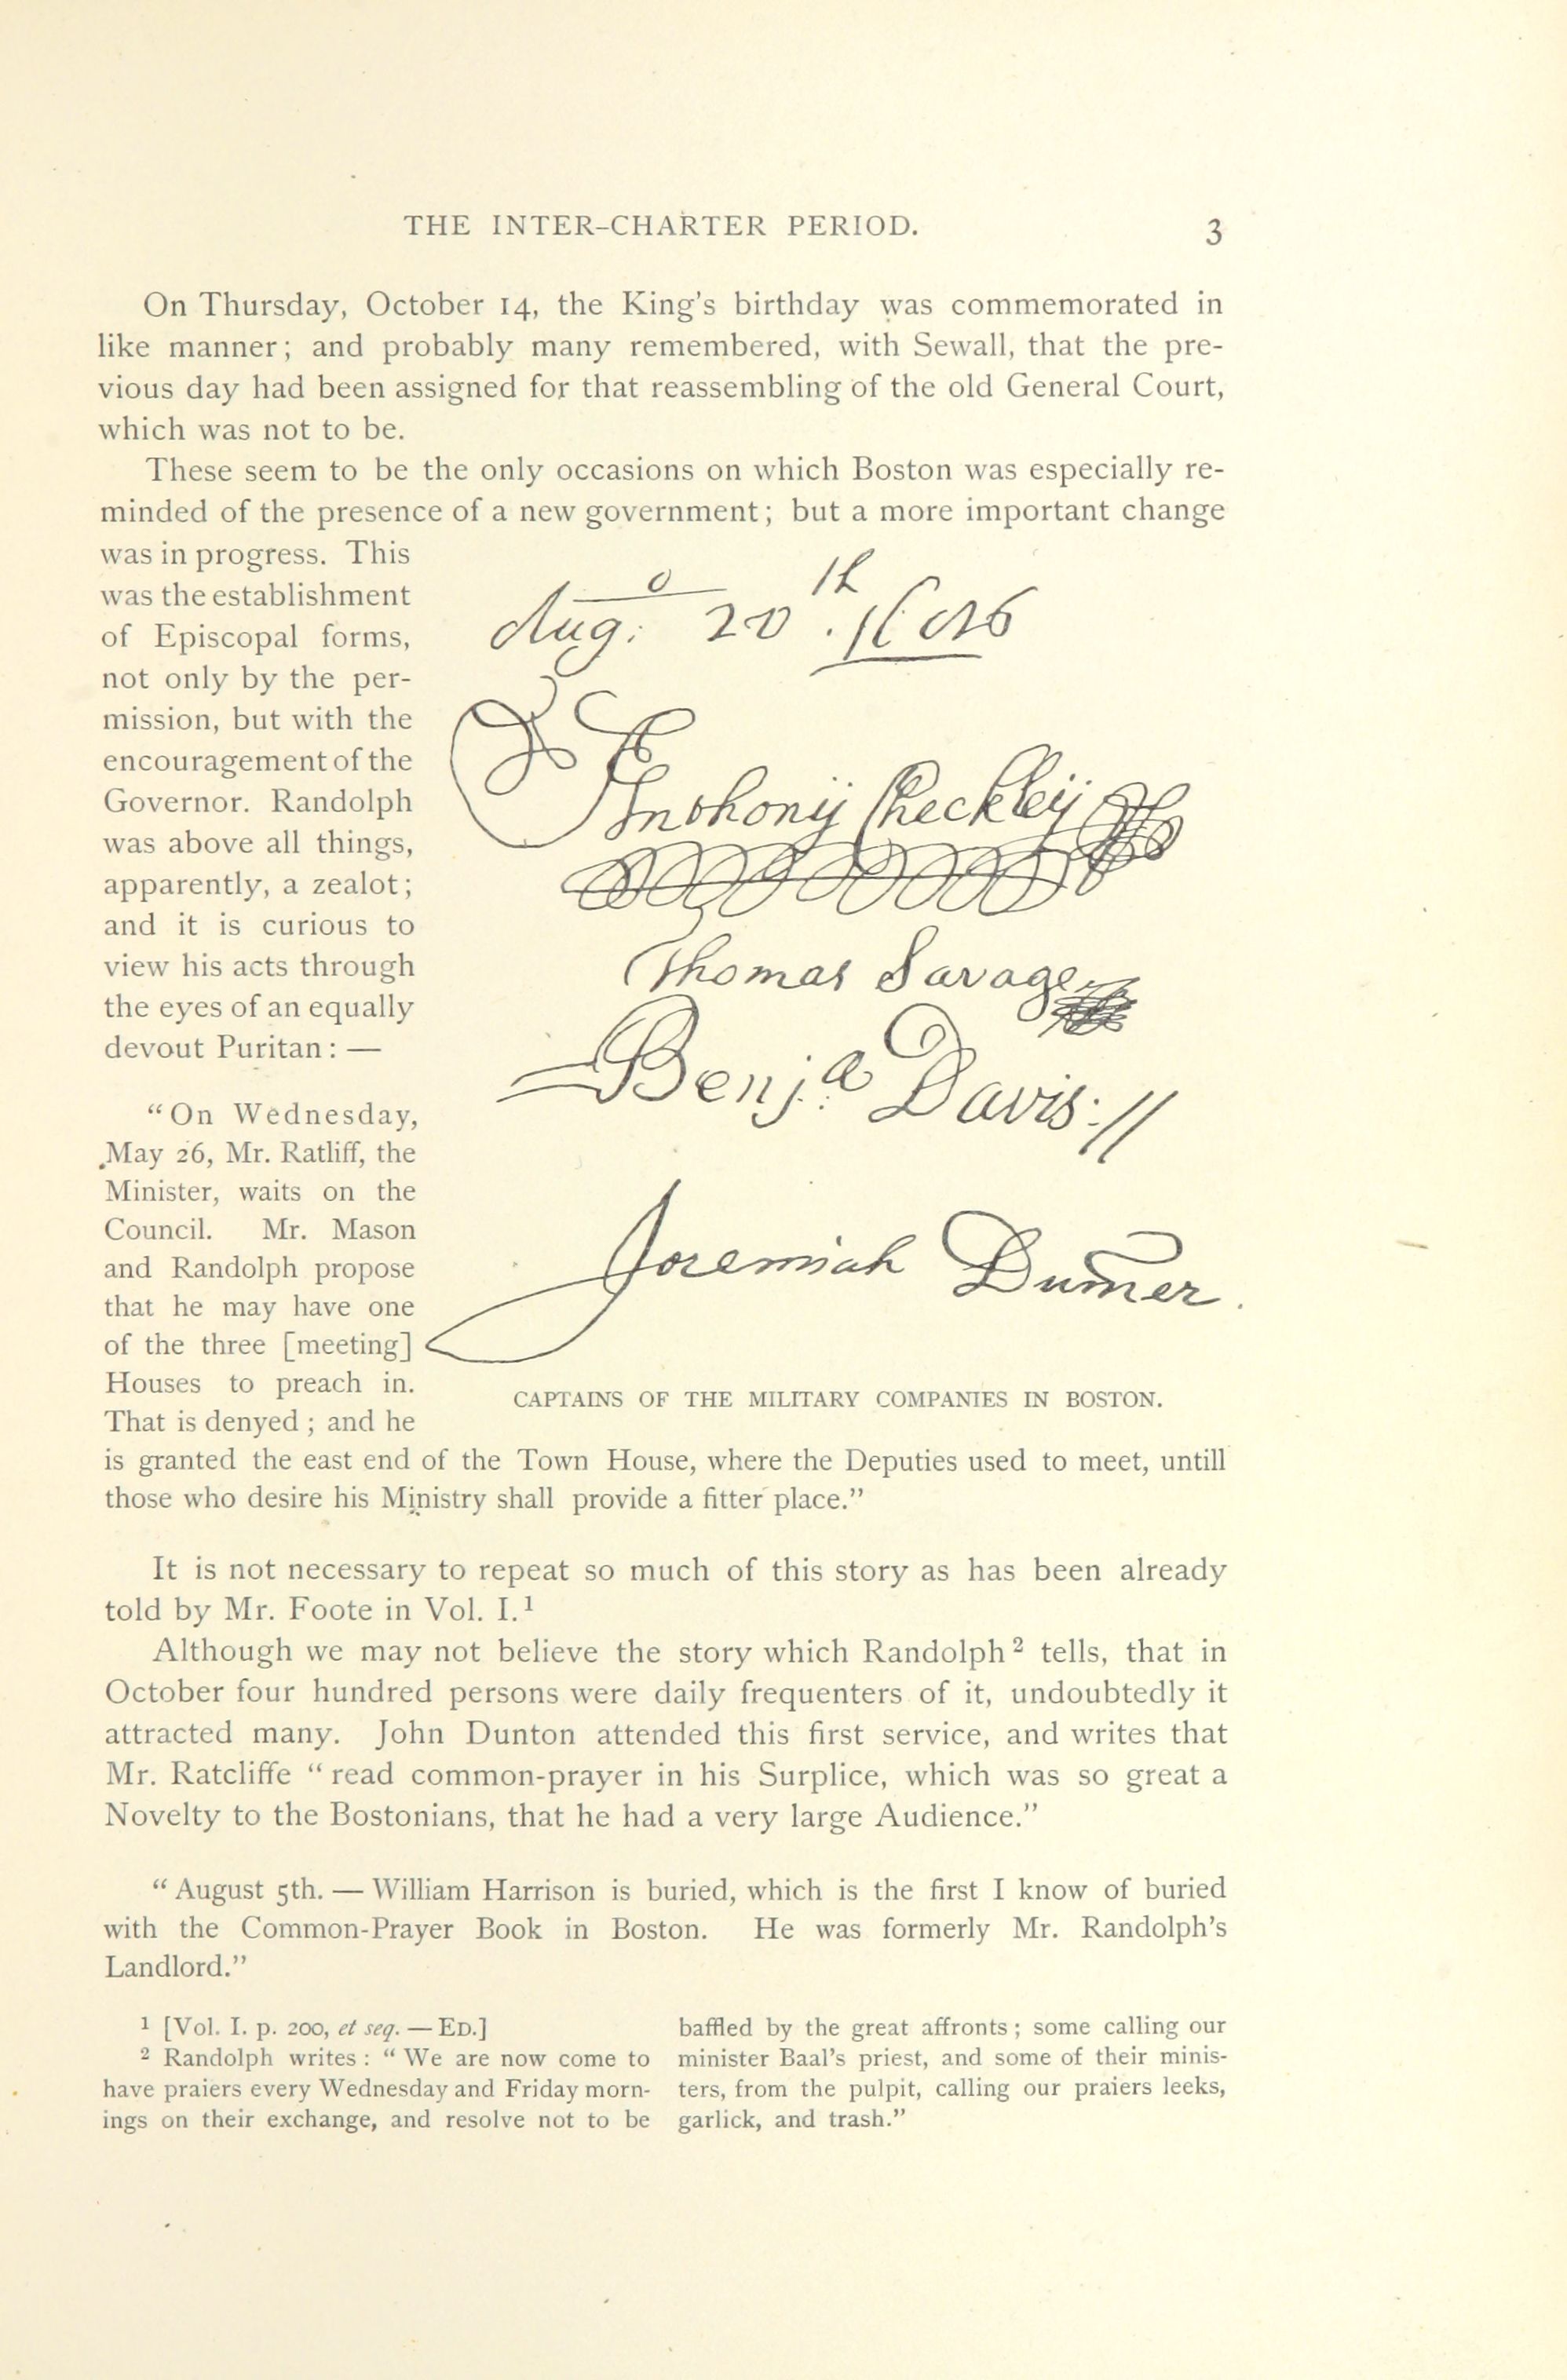 THE INTER-CHARTER PERIOD. 3
On Thursday, October 14, the King's birthday was commemorated in
like manner; and probably many remembered, with Sewall, that the pre-
vious day had been assigned for that reassembling of the old General Court,
which was not to be.
These seem to be the only occasions on which Boston was especially re-
minded of the presence of a new government; but a more important change
was in progress. This
was the establishment
of Episcopal forms,
not only by the per-
mission, but with the
encouragement of the
Governor. Randolph
was above all things,
apparently, a zealot;
and it is curious to
view his acts through
the eyes of an equally
devout Puritan: —
"On Wednesday,
May 26, Mr. Ratliff, the
Minister, waits on the
Council. Mr. Mason
and Randolph propose
that he may have one
of the three [meeting]
Houses to preach in.
That is denyed; and he
Augo: 20th. 1686
Anthony Checkley
Thomas Savage
Benja Davis://
Jeremiah Dumer.
CAPTAINS OF THE MILITARY COMPANIES IN BOSTON.
is granted the east end of the Town House, where the Deputies used to meet, untill
those who desire his Ministry shall provide a fitter place."
It is not necessary to repeat so much of this story as has been already
told by Mr. Foote in Vol. I.¹
Although we may not believe the story which Randolph² tells, that in
October four hundred persons were daily frequenters of it, undoubtedly it
attracted many. John Dunton attended this first service, and writes that
Mr. Ratcliffe "read common-prayer in his Surplice, which was so great a
Novelty to the Bostonians, that he had a very large Audience."
"August 5th. — William Harrison is buried, which is the first I know of buried
with the Common-Prayer Book in Boston. He was formerly Mr. Randolph's
Landlord."
¹ [Vol. I. p. 200, et seq. — ED.]
² Randolph writes: "We are now come to
have praiers every Wednesday and Friday morn-
ings on their exchange, and resolve not to be
baffled by the great affronts; some calling our
minister Baal's priest, and some of their minis-
ters, from the pulpit, calling our praiers leeks,
garlick, and trash."